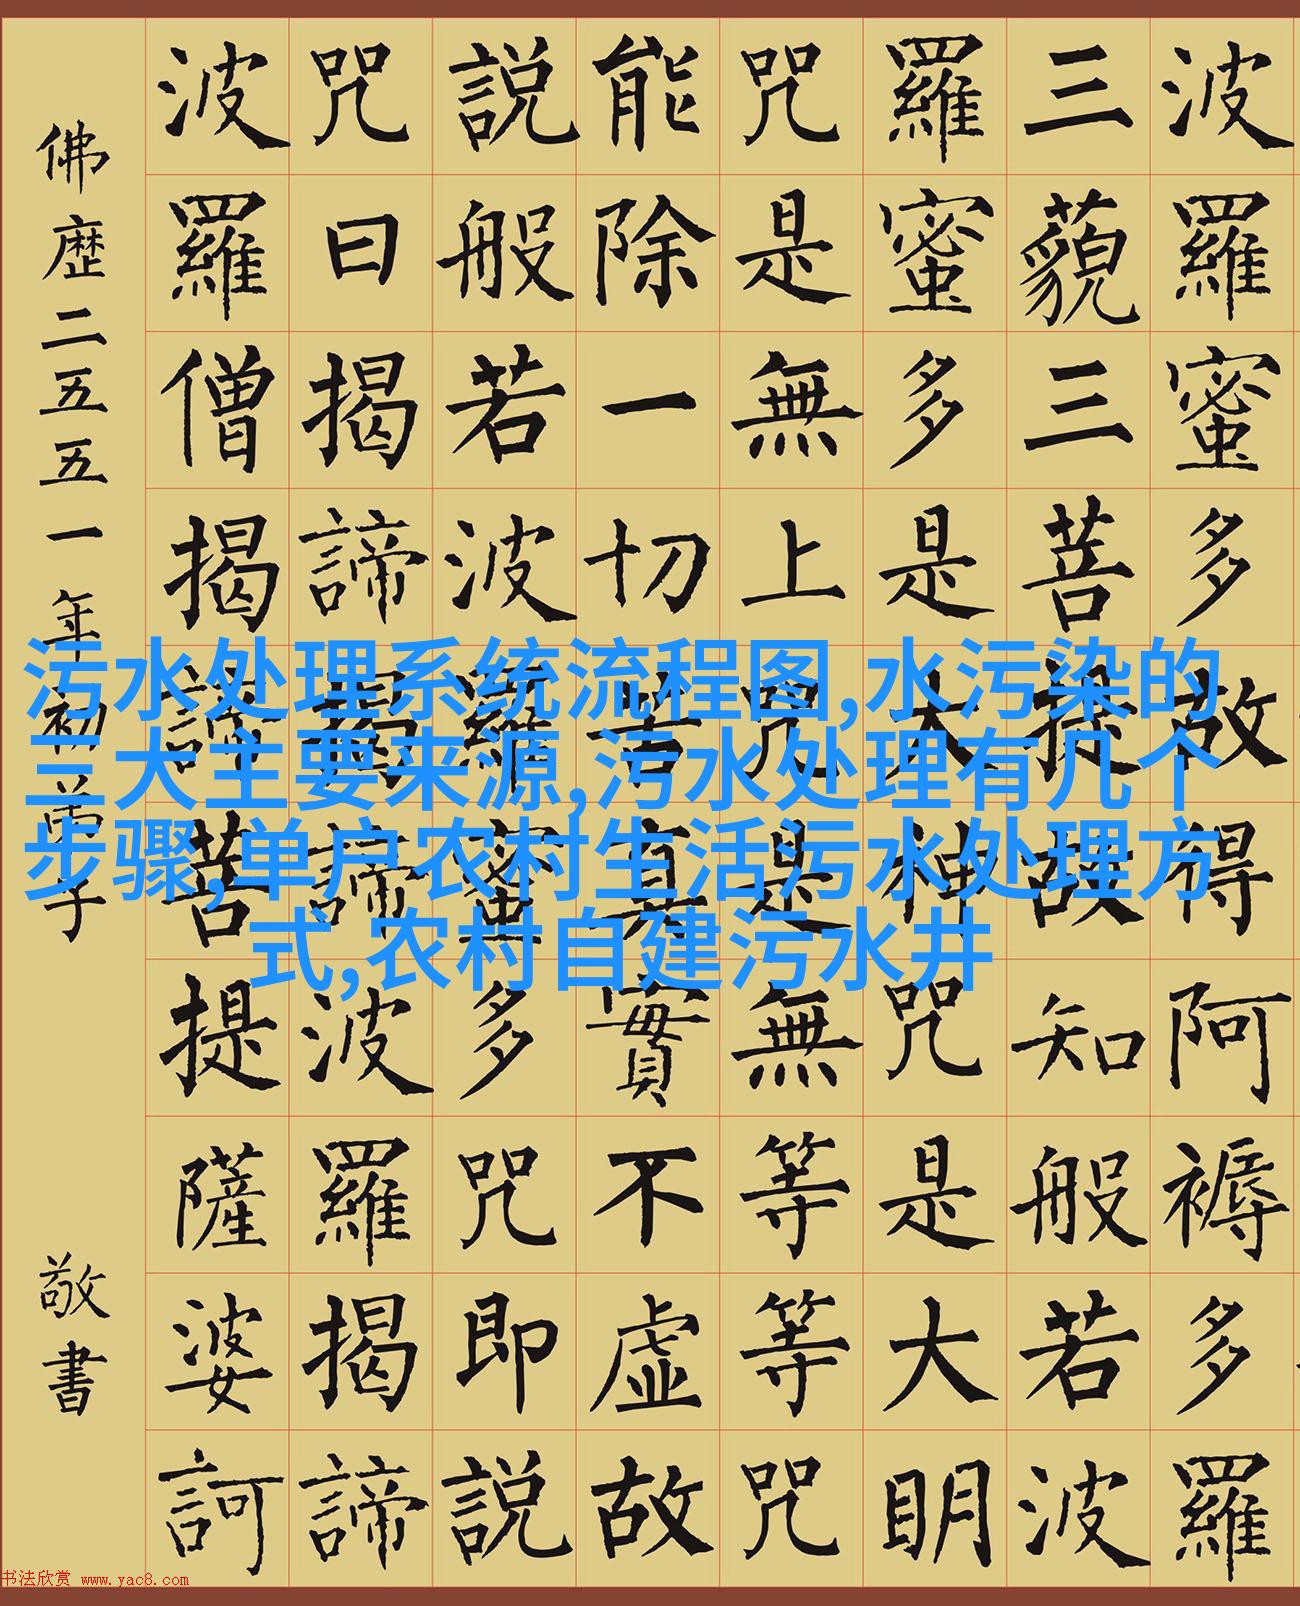 波羅蜜多故得阿褥多羅
三藐三菩提故知般若波
羅蜜多是大神咒是大眀
咒是無上咒是無等等咒
能除一切苦真實不虚故
説般若波羅蜜多咒即説
咒曰揭諦揭諦波羅揭諦
波羅僧揭諦菩提薩婆訶
佛歴二五五一年初
敬書
污水处理系统流程图,水污染的
三大主要来源,污水处理有几个
步骤,单户农村生活污水处理方
式,农村自建污水井
书法欣赏 www.yac8.com